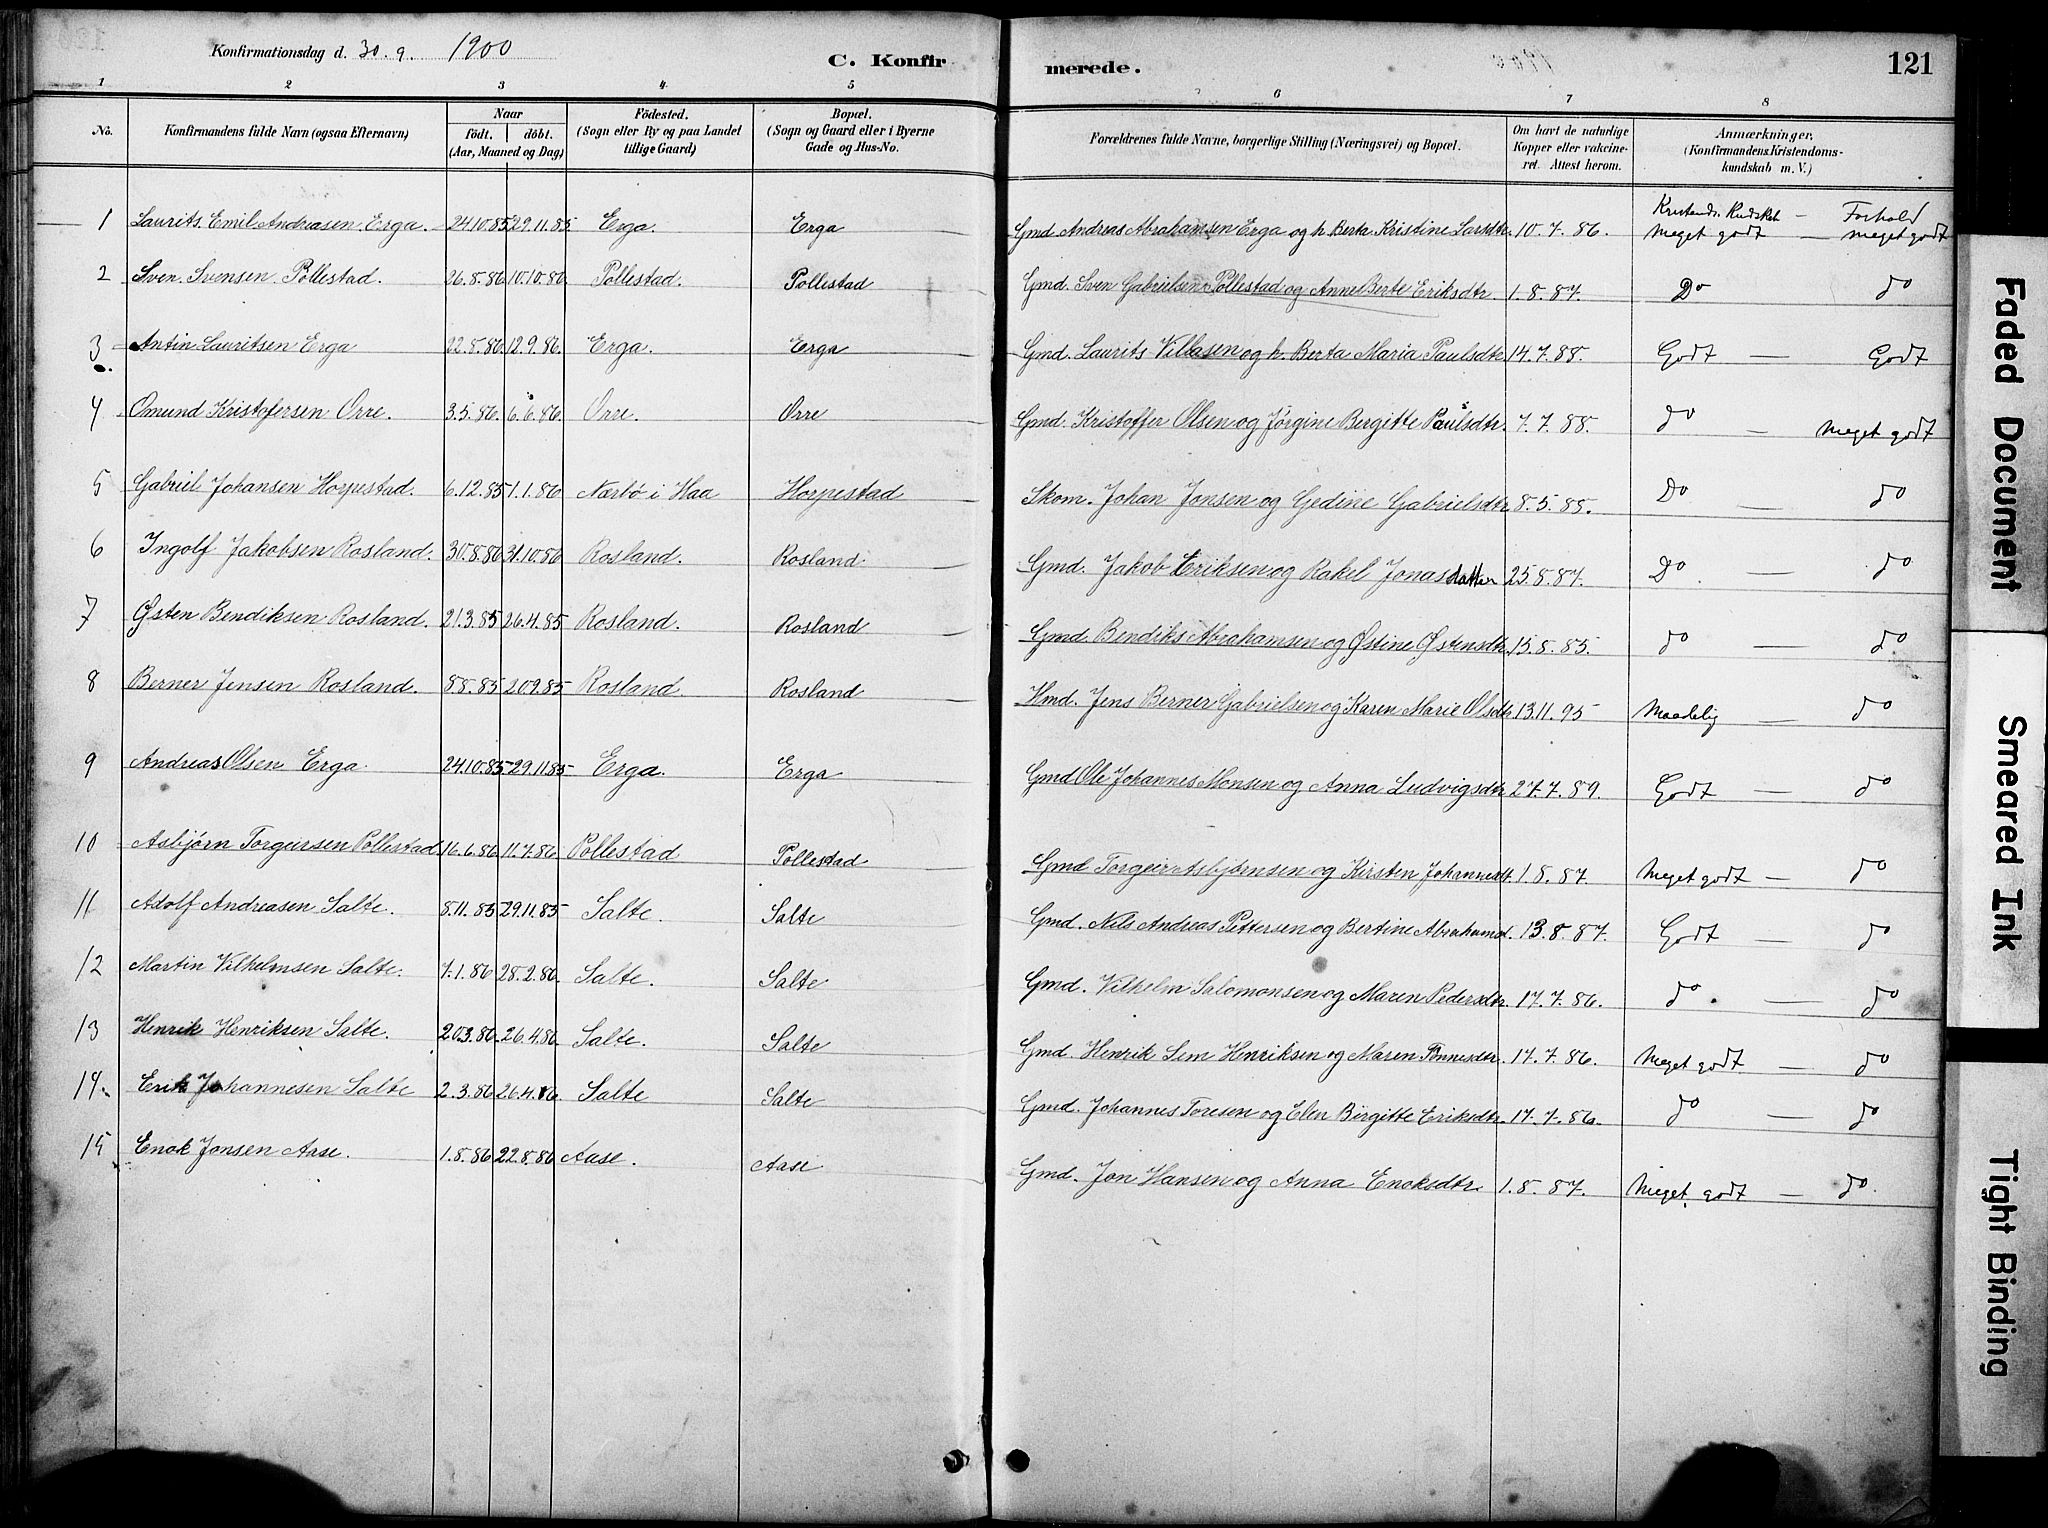 Konfirmationsdag d. 30. 9. 1900 C. Konfirmerede. 121
1 2 3 4 5 6 7 8
No. Konfirmandens fulde Navn (ogsaa Efternavn) Naar födt. döbt. (Aar, Maaned og Dag) Födested. (Sogn eller By og paa Landet tillige Gaard) Bopæl. (Sogn og Gaard eller i Byerne Gade og Hus-No. Forældrenes fulde Navne, borgerlige Stilling (Næringsvei) og Bopæl. Om havt de naturlige Kopper eller vakcineret. Attest herom. Anmærkninger. (Konfirmandens Kristendomskundskab m. V.)
Kristends. Kndskab — Forhold
1 Laurits Emil Andreasen Erga. 24.10.85 29.11.85 Erga. Erga Gmd. Andreas Abrahamsen Erga og h. Berta Kristine Larsdtr. 10.7.86. Meget godt — meget godt
2 Sven Svensen Pollestad. 26.8.86 10.10.86 Pollestad. Pollestad Gmd. Sven Gabrielsen Pollestad og Anne Berte Eriksdtr. 1.8.87. Do do
3 Antin Lauritsen Erga 22.8.86 12.9.86. Erga. Erga Gmd. Laurits Villasen og h. Berta Maria Paulsdtr. 14.7.88. Godt — Godt
4 Omund Kristofersen Orre. 3.5.86. 6.6.86. Orre. Orre Gmd. Kristoffer Olsen og Jørgine Bergitte Paulsdtr. 7.7.88. do — Meget godt
5 Gabriel Johansen Horpestad. 6.12.85 1.1.86 Nærbö i Haa Horpestad Skom. Johan Jonsen og Gedine Gabrielsdtr. 8.5.85. Do — do
6 Ingolf Jakobsen Rosland. 30.8.86 31.10.86 Rosland. Rosland. Gmd. Jakob Eriksen og Rakel Jonasdatter 25.8.87. Do. — do
7 Østen Bendiksen Rosland. 21.3.85 26.4.85 Rosland. Rosland Gmd. Bendiks Abrahamsen og Østine Østensdtr. 15.8.85. do — do
8 Berner Jensen Rosland. 8.8.85 20.9.85 Rosland Rosland Hmd. Jens Berner Gabrielsen og Karen Marie Olsdtr. 13.11.95 Maadelig — do
9 Andreas Olsen Erga. 24.10.85 29.11.85 Erga. Erga Gmd Ole Johannes Monsen og Anna Ludvigsdtr. 27.7.89. Godt — do
10 Asbjørn Torgeirsen Pollestad 16.6.86 11.7.86 Pollestad Pollestad Gmd Torgeir Asbjørnsen og Kirsten Johannesdt. 1.8.87. Meget godt — do
11 Adolf Andreasen Salte. 8.11.85 29.11.85 Salte. Salte Gmd. Nils Andreas Pettersen og Bertine Abrahamd. 13.8.87. Godt — do
12 Martin Vilhelmsen Salte. 7.1.86 28.2.86. Salte. Salte Gmd. Vilhelm Salomonsen og Maren Pedersdtr. 17.7.86. do. — do
13 Henrik Henriksen Salte. 20.3.86. 26.4.86. Salte. Salte Gmd. Henrik Sem Henriksen og Maren Tønnesdtr. 17.7.86. Meget godt — do
14. Erik Johannesen Salte 2.3.86 26.4.86. Salte Salte Gmd. Johannes Toresen og Elen Birgitte Eriksdtr. 17.7.86. do — do
15 Enok Jonsen Aase. 1.8.86 22.8.86 Aase. Aase Gmd. Jon Hansen og Anna Enoksdtr. 1.8.87. Meget godt — do.
Faded Document
Smeared Ink
Tight Binding